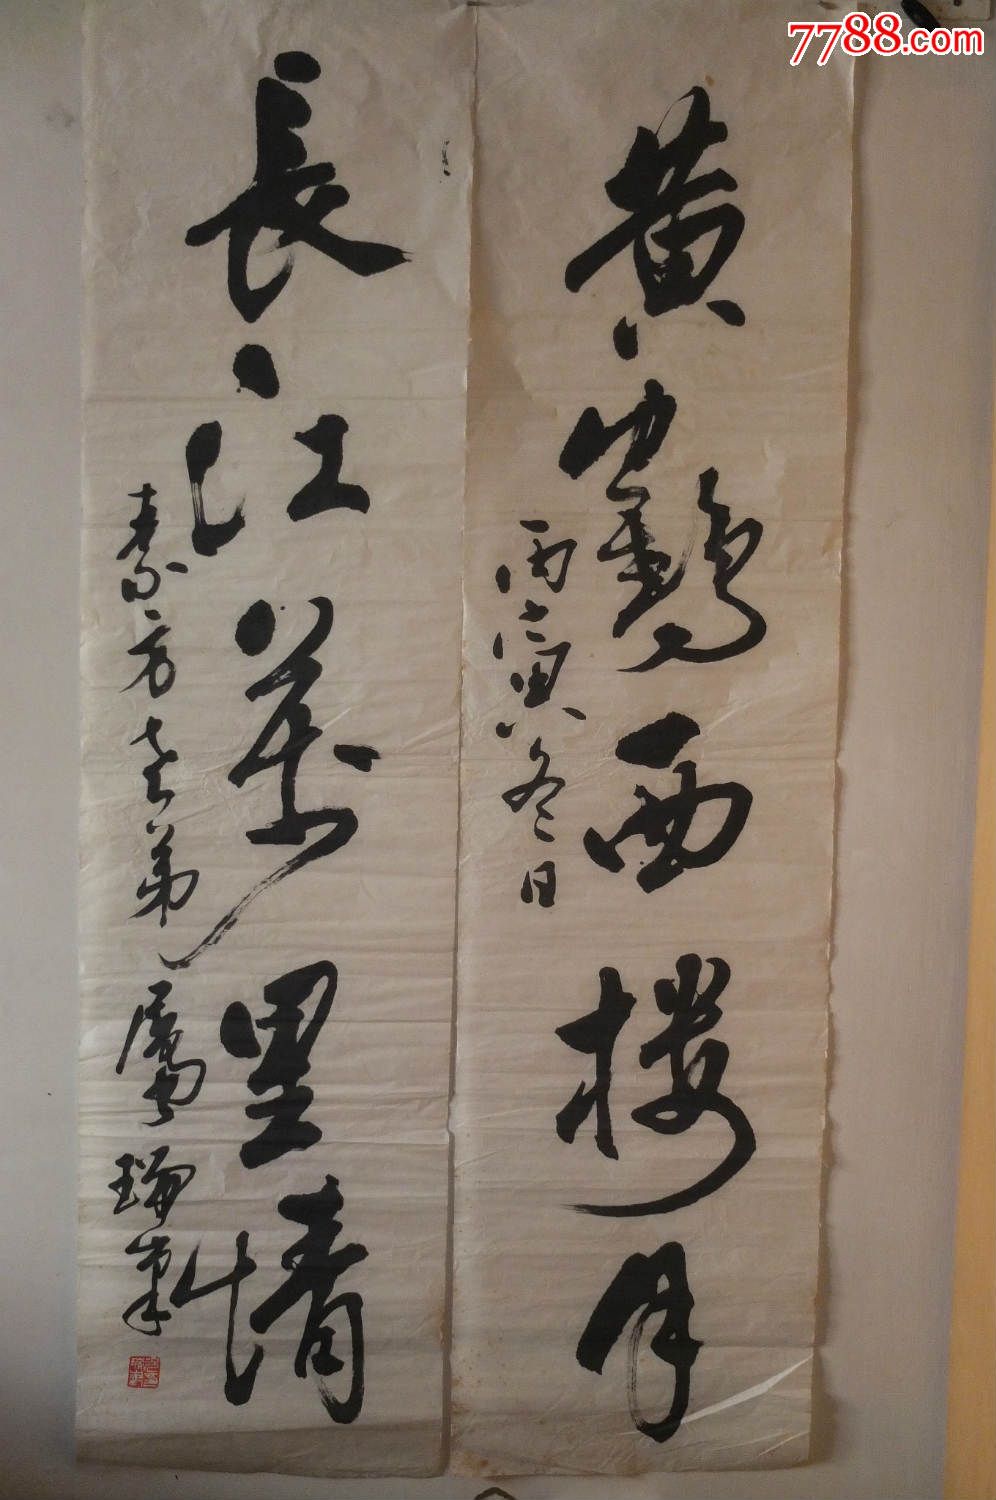 7788.com
黄鹤西楼月
丙寅冬日
長江萬里情
素方老弟屬